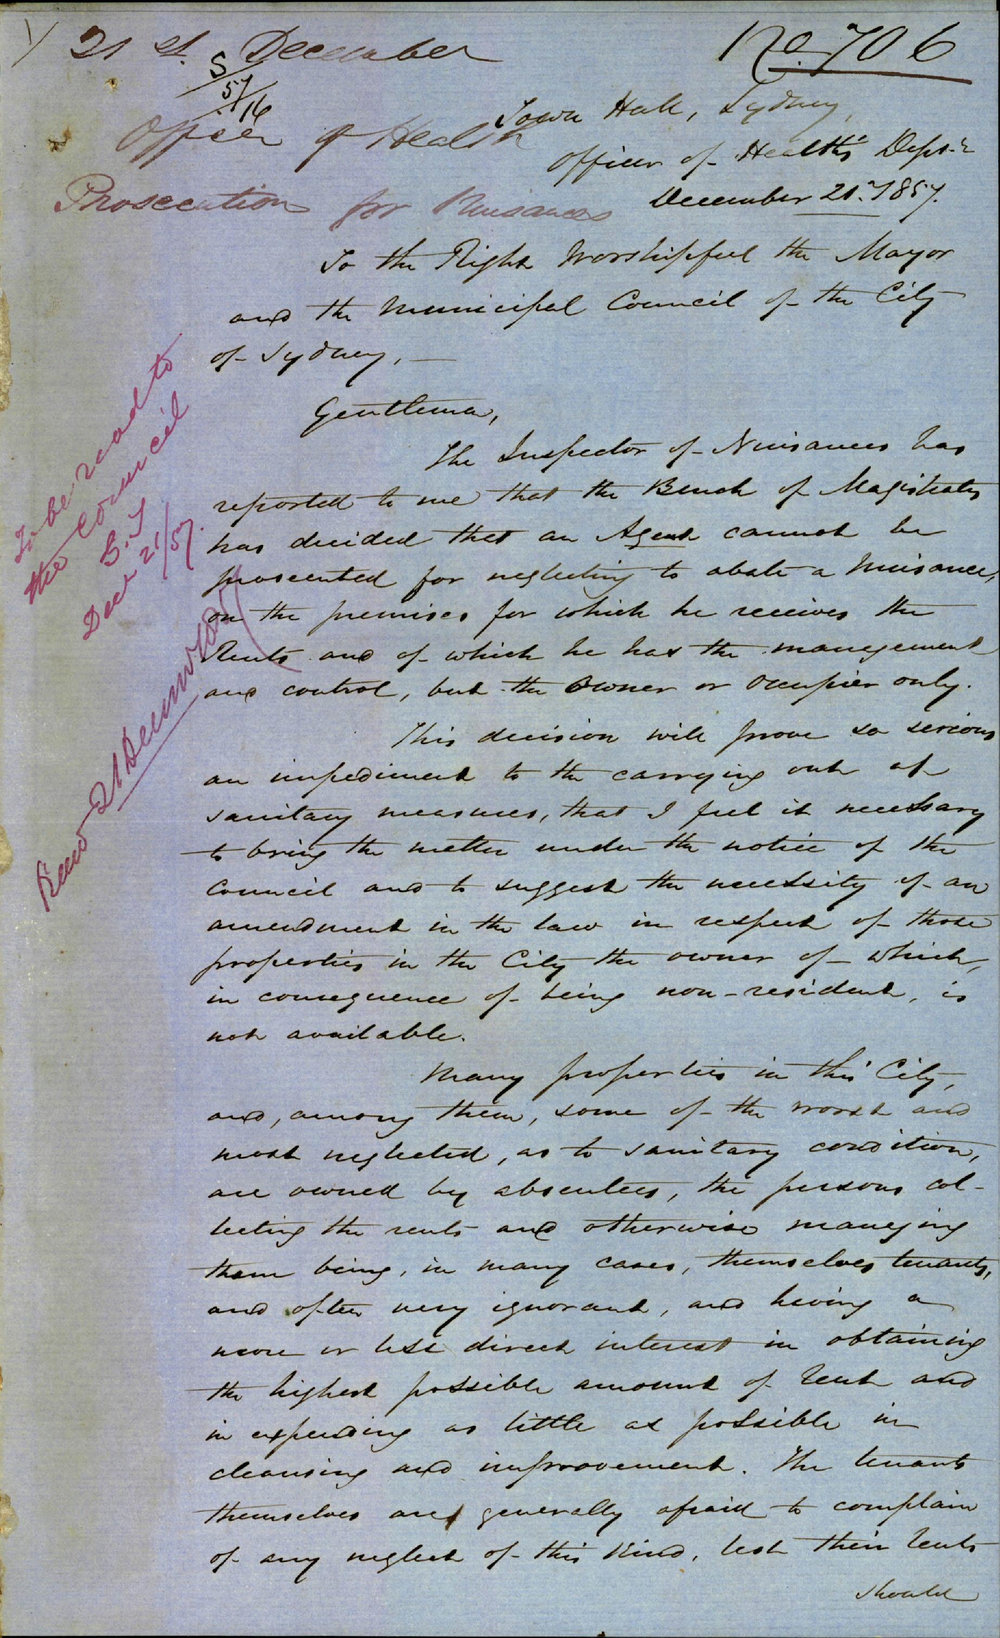 1/ 21st. December
No 706
S
57/16
Officer of Health
Prosecution for Nuisances
Town Hall, Sydney,
Officer of Health's Dept.
December 21. 1857.
To the Right Worshipful the Mayor
and the Municipal Council of the City
of Sydney, —
Gentlemen,
The Inspector of Nuisances has
reported to me that the Bench of Magistrates
has decided that an Agent cannot be
prosecuted for neglecting to abate a Nuisance,
on the premises for which he receives the
Rents and of which he has the management
and control, but the Owner or Occupier only.
This decision will prove so serious
an impediment to the carrying out of
sanitary measures, that I feel it necessary
to bring the matter under the notice of the
Council and to suggest the necessity of an
amendment in the law in respect of those
properties in the City the owner of which,
in consequence of being non-resident, is
not available.
Many properties in this City,
and, among them, some of the worst and
most neglected, as to sanitary condition,
are owned by absentees, the persons col-
lecting the rents and otherwise managing
them being, in many cases, themselves tenants,
and often very ignorant, and having a
more or less direct interest in obtaining
the highest possible amount of Rent and
in expending as little as possible in
cleansing and improvement. The tenants
themselves are generally afraid to complain
of any neglect of this kind, lest their Rents
should
To be read to
the Council
Decr 21/57.
Recd 21 December 1857